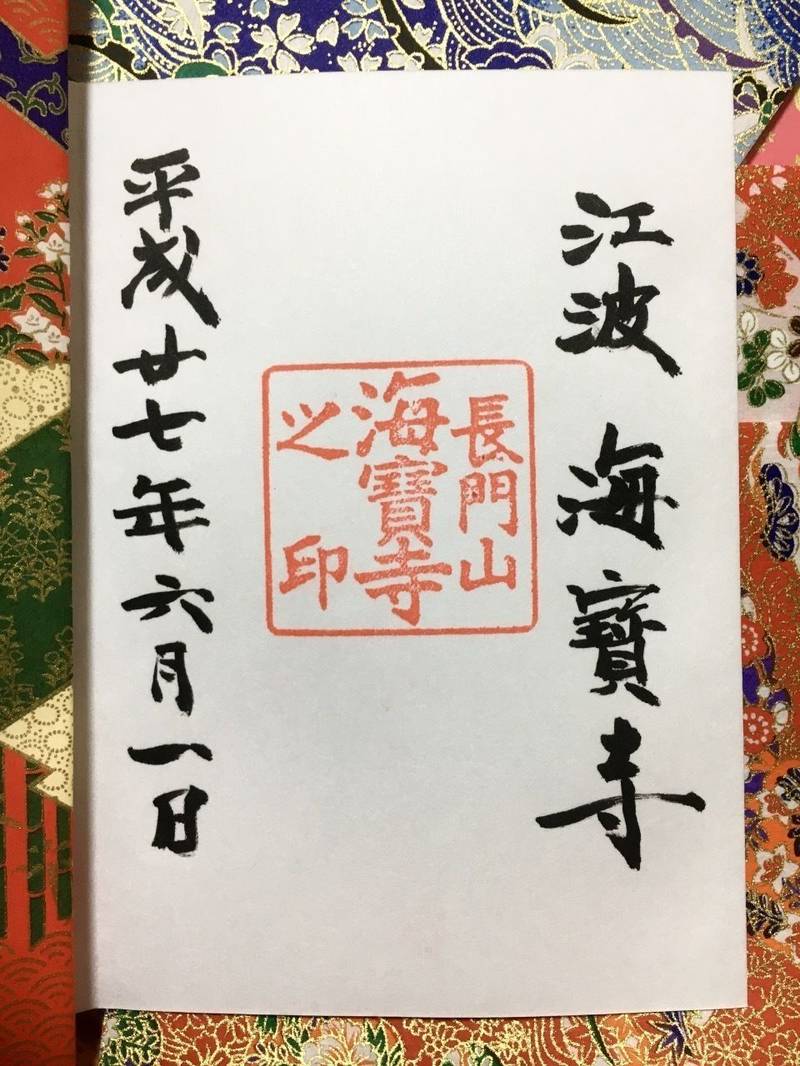 江波 海寶寺
長門山
海寶寺
之印
平成廿七年六月一日